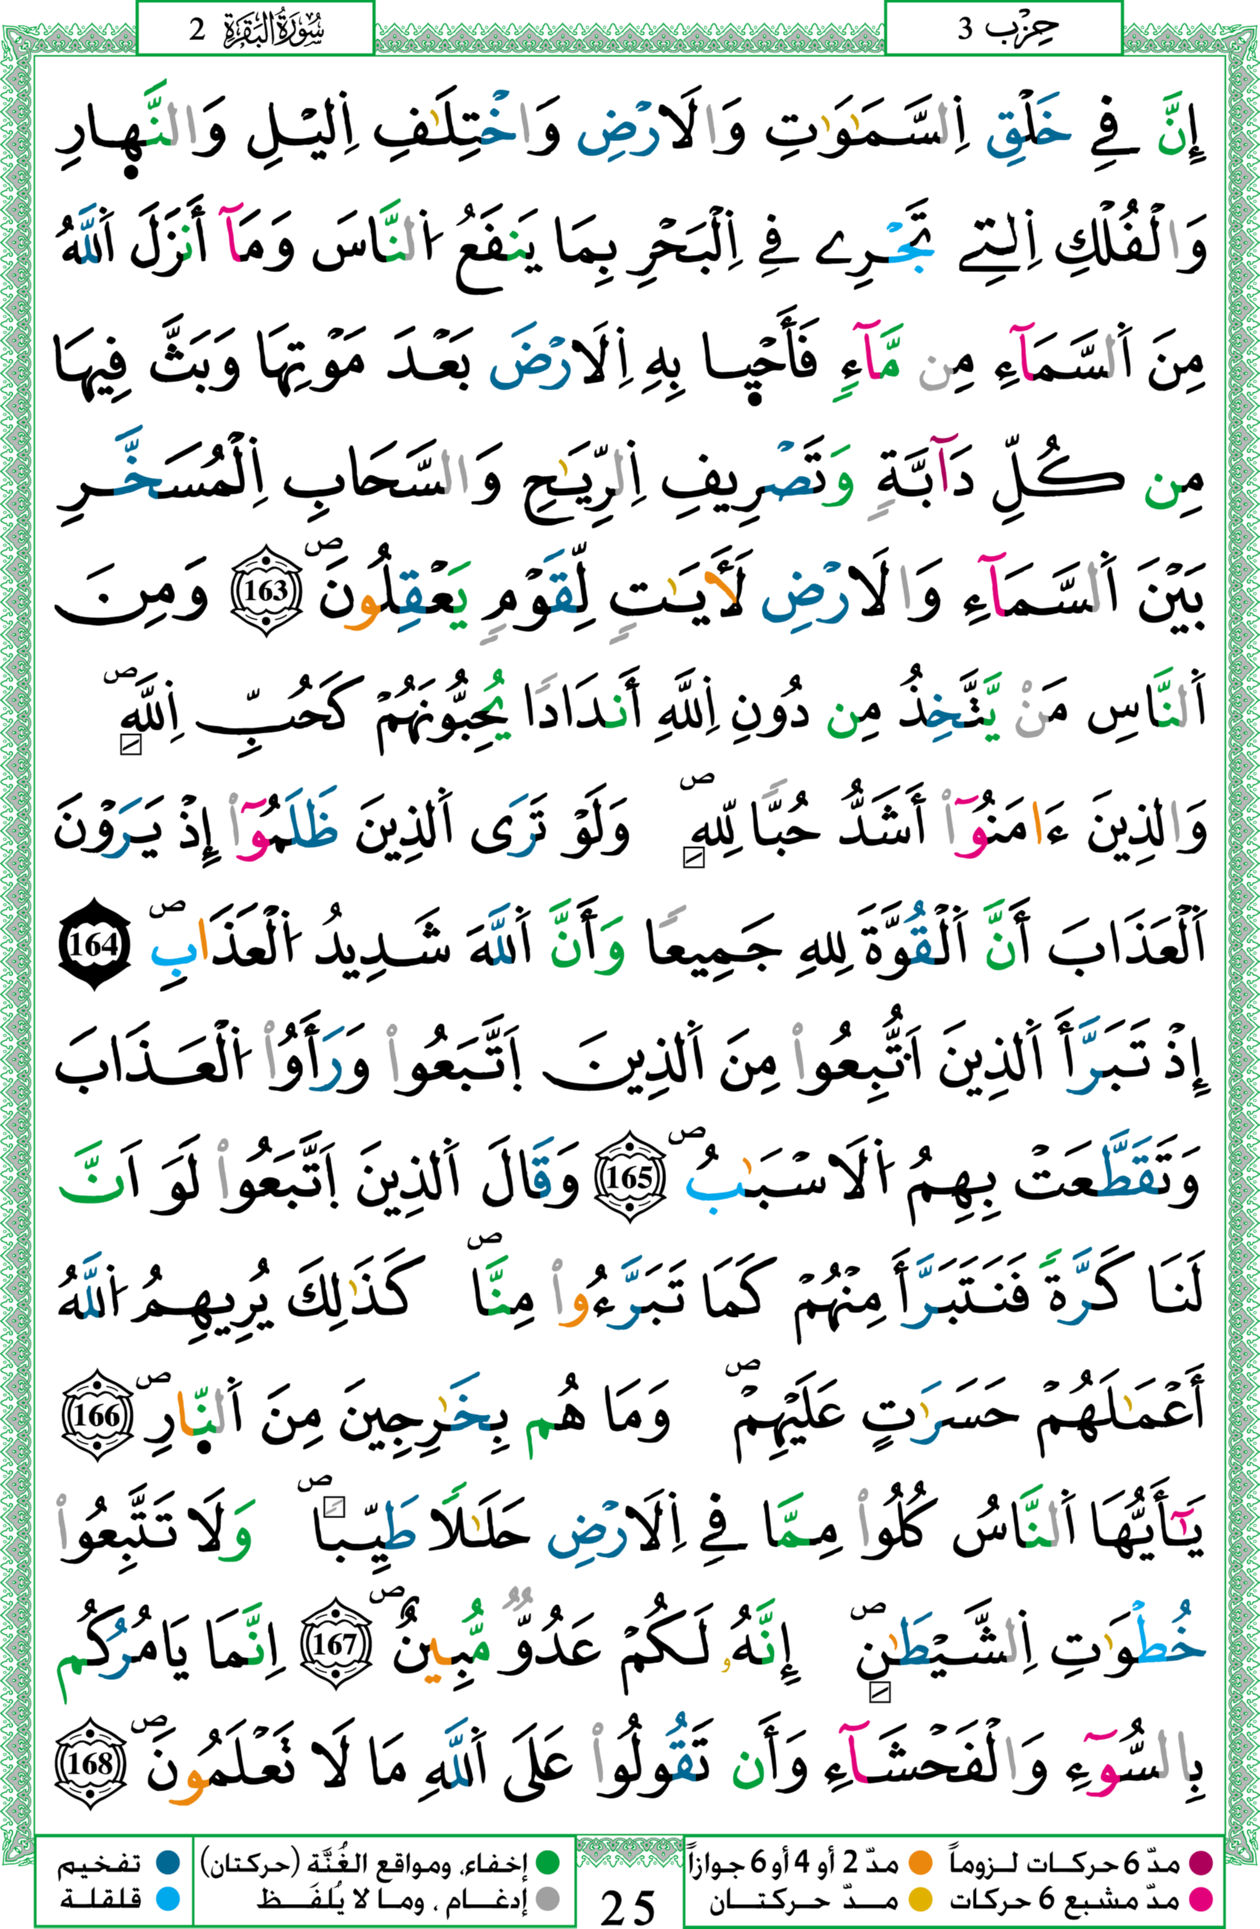 حِزْب 3
سُورَةُ البَقَرَةِ 2
إِنَّ فِے خَلْقِ اِ۬لسَّمَٰوَٰتِ وَالَارْضِ وَاخْتِلَٰفِ اِ۬ليْلِ وَالنَّه۪ارِ
وَالْفُلْكِ اِ۬لتِے تَجْرِے فِے اِ۬لْبَحْرِ بِمَا يَنفَعُ اُ۬لنَّاسَ وَمَآ أَنزَلَ اَ۬للَّهُ
مِنَ اَ۬لسَّمَآءِ مِن مَّآءٖ فَأَحْي۪ا بِهِ اِ۬لَارْضَ بَعْدَ مَوْتِهَا وَبَثَّ فِيهَا
مِن كُلِّ دَآبَّةٖ وَتَصْرِيفِ اِ۬لرِّيَٰحِ وَالسَّحَابِ اِ۬لْمُسَخَّرِ
بَيْنَ اَ۬لسَّمَآءِ وَالَارْضِ لَأٓيَٰتٖ لِّقَوْمٖ يَعْقِلُونَۖ 163 وَمِنَ
اَ۬لنَّاسِ مَنْ يَّتَّخِذُ مِن دُونِ اِ۬للَّهِ أَندَادٗا يُحِبُّونَهُمْ كَحُبِّ اِ۬للَّهِۖ
وَالذِينَ ءَامَنُوٓاْ أَشَدُّ حُبّٗا لِّلهِۖ وَلَوْ تَرَى اَ۬لذِينَ ظَلَمُوٓاْ إِذْ يَرَوْنَ
اَ۬لْعَذَابَ أَنَّ اَ۬لْقُوَّةَ لِلهِ جَمِيعٗا وَأَنَّ اَ۬للَّهَ شَدِيدُ اُ۬لْعَذَابِۖ 164
إِذْ تَبَرَّأَ اَ۬لذِينَ اَ۟تُّبِعُواْ مِنَ اَ۬لذِينَ اَ۪تَّبَعُواْ وَرَأَوُاْ اُ۬لْعَذَابَ
وَتَقَطَّعَتْ بِهِمُ اُ۬لَاسْبَٰبُۖ 165 وَقَالَ اَ۬لذِينَ اَ۪تَّبَعُواْ لَوَ اَنَّ
لَنَا كَرَّةٗ فَنَتَبَرَّأَ مِنْهُمْ كَمَا تَبَرَّءُواْ مِنَّاۖ كَذَٰلِكَ يُرِيهِمُ اُ۬للَّهُ
أَعْمَٰلَهُمْ حَسَرَٰتٍ عَلَيْهِمْۖ وَمَا هُم بِخَٰرِجِينَ مِنَ اَ۬لنّ۪ارِۖ 166
يَٰٓأَيُّهَا اَ۬لنَّاسُ كُلُواْ مِمَّا فِے اِ۬لَارْضِ حَلَٰلٗا طَيِّباٗۖ وَلَا تَتَّبِعُواْ
خُطْوَٰتِ اِ۬لشَّيْطَٰنِۖ إِنَّهُۥ لَكُمْ عَدُوّٞ مُّبِينٌۖ 167 اِنَّمَا يَامُرُكُم
بِالسُّوٓءِ وَالْفَحْشَآءِ وَأَن تَقُولُواْ عَلَى اَ۬للَّهِ مَا لَا تَعْلَمُونَۖ 168
مدّ 6 حركات لـزومـاً مدّ 2 أو 4 أو 6 جوازاً
إخفاء، ومواقع الغُنَّة (حركتان) تفخيم
مدّ مشبع 6 حركات مـدّ حركتـان
إدغام ، وما لا يُلفَـظ قلقلـة
25